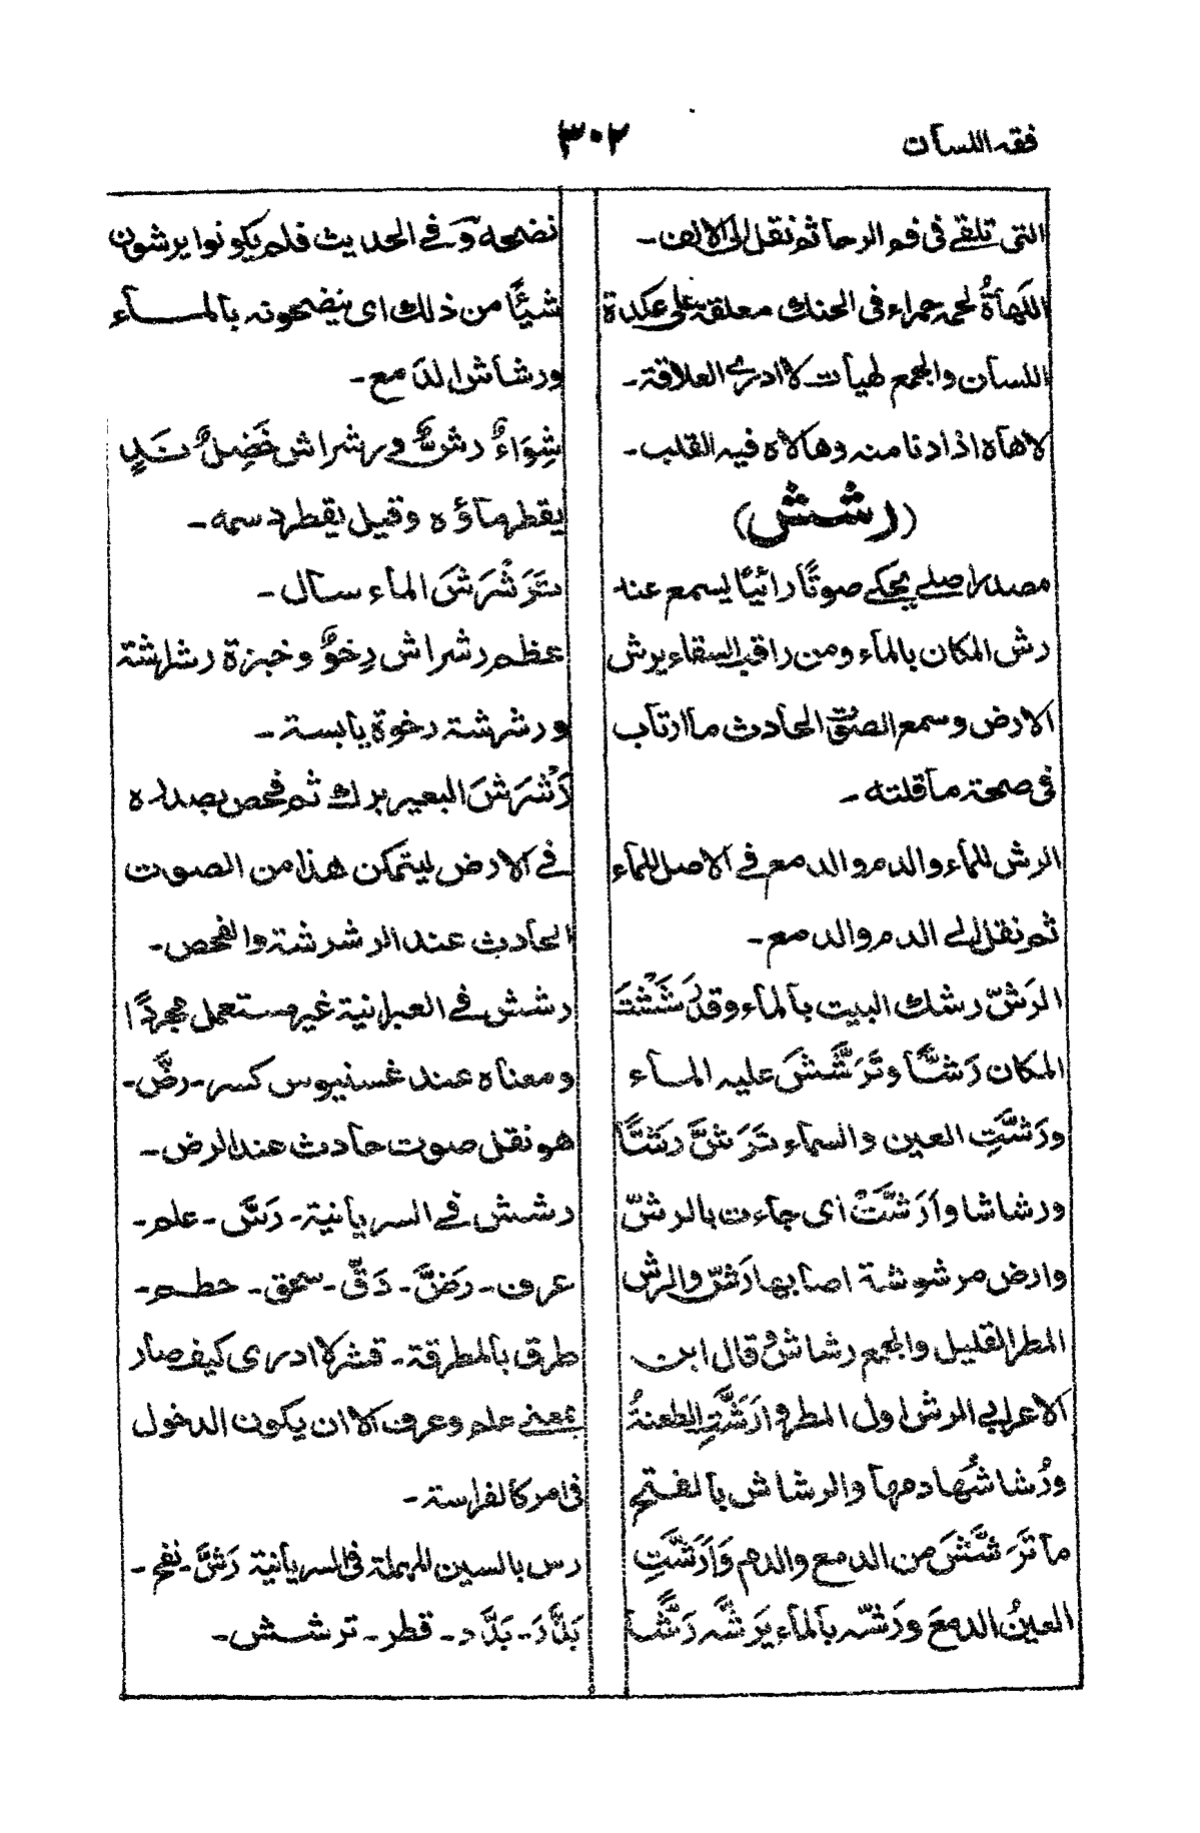 فقه اللسان
٣٠٢
التى تلقى فى فم الرحا ثم نقل الى الالف ـ
اللَهاةُ لحمة حمراء فى الحنك معلقة على عكدة
اللسان والجمع لهيات ـ لا ادرى العلاقة ـ
لاهاه اذا دنا منه وهالاه فيه القلب ـ
(رشش)
مصدر اصلى يحكى صوتًا رائيًا يسمع عند
رش المكان بالماء ومن راقب السقاء يرش
الارض وسمع الصوت الحادث ما ارتاب
فى صحة ما قلته ـ
الرش للماء والدم والدمع فى الاصل للماء
ثم نقل الى الدم والدمع ـ
الرَشّ رشك البيت بالماء وقد رَشَشْتَ
المكان رَشًّا وتَرَشَّشَ عليه الماء
ورَشَّتِ العين والسماء تَرَشَّ رشًّا
ورشاشا واَرَشَّتْ اى جاءت بالرشّ
وارض مرشوشة اصابها رَشّ والرش
المطر القليل والجمع رشاشٌ قال ابن
الاعرابى الرش اول المطر و ارَشَّتِ الطعنةُ
ورُشاشُها دمها والرشاش بالفتح
ما تَرَشَّشَ من الدمع والدم وَاَرَشَّتِ
العينُ الدمعَ ورَشّه بالماء يَرشُّه رَشًّا
نضحه وَفى الحديث فلم يكونوا يرشون
شيئًا من ذلك اى ينضحونه بالماء
ورشاش الدمع ـ
شِوَاءٌ رشٌّ ورشراش خَضِلٌ نَدٍ
يقطر ماؤه وقيل يقطر دسمه ـ
تَرَشْرَشَ الماء سال ـ
عظم رشراش رِخوٌ وخبزة رشراشة
ورشرشة رخوة يابسة ـ
رَشْرَشَ البعير برك ثم فحص بصدره
فى الارض ليتمكن هذا من الصوت
الحادث عند الرشرشة والفحص ـ
رشش فى العبرانية غير مستعمل مجردًا
ومعناه عند غسنيوس كسر ـ رضَّ ـ
هو نقل صوت حادث عند الرض ـ
رشش فى السريانية ـ رَسَّ ـ علم ـ
عرف ـ رَضَّ ـ دَقّ ـ سحق ـ حطم ـ
طرق بالمطرقة ـ قشر لا ادرى كيف صار
بمعنى علم وعرف الا ان يكون الدخول
فى امر كالفراسة ـ
رس بالسين المهملة فى السريانية رَشَّ ـ نفح ـ
بَدَّدَ ـ بَدَّد ـ قطر ـ ترشش ـ